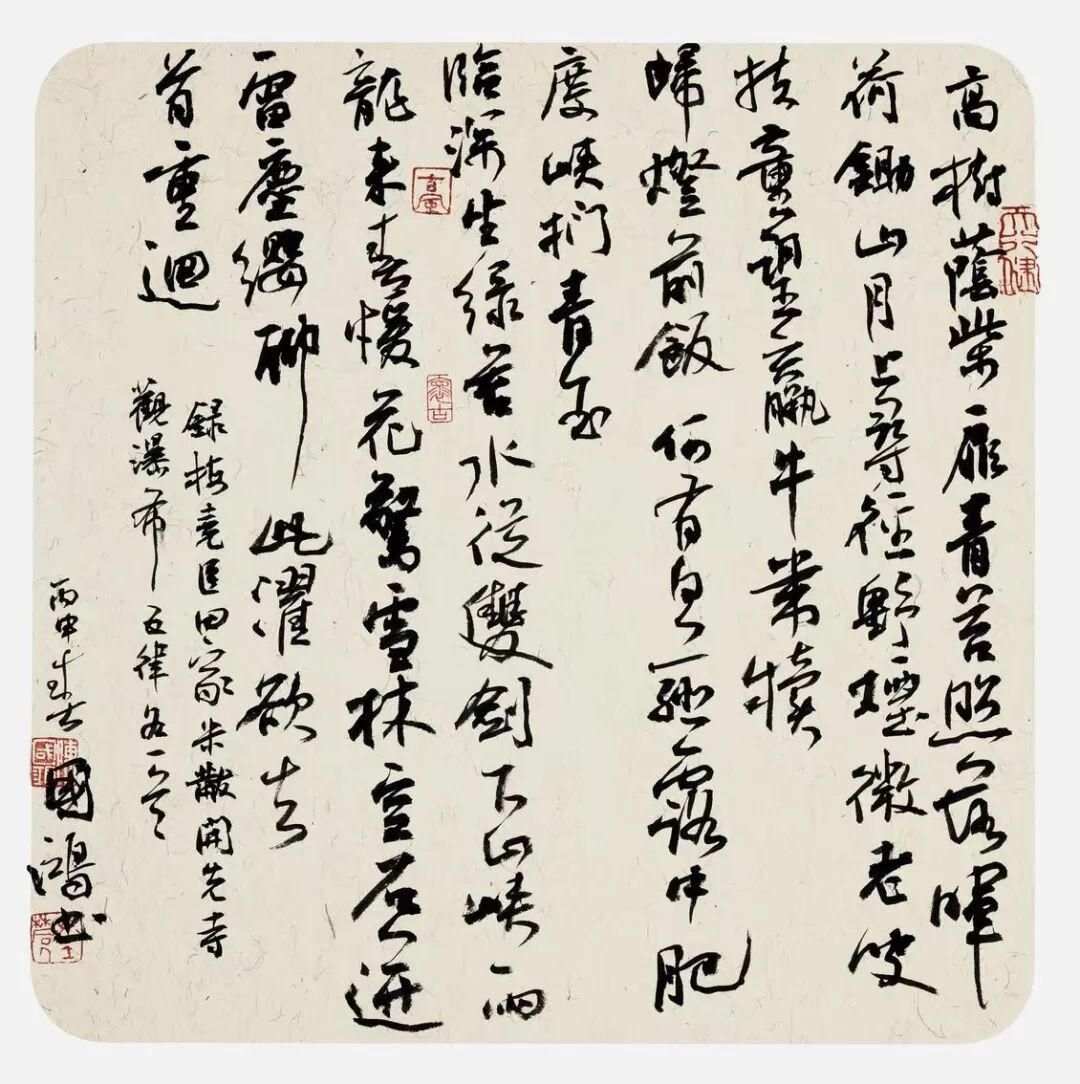 高樹蔭柴扉青苔照落暉
荷鋤山月上尋徑野煙微老叟
扶童望羸牛帶犢
歸燈前飯何有白薤露中肥
度峽捫青玉
臨深坐綠苔水從雙劍下山峽兩
龍來春暖花驚雪林空石迸
雷塵纓聊此濯欲去
首重迴
錄梅堯臣田家米黻開先寺
觀瀑布五律各一首
丙申春日國鴻書
天行健
懷古